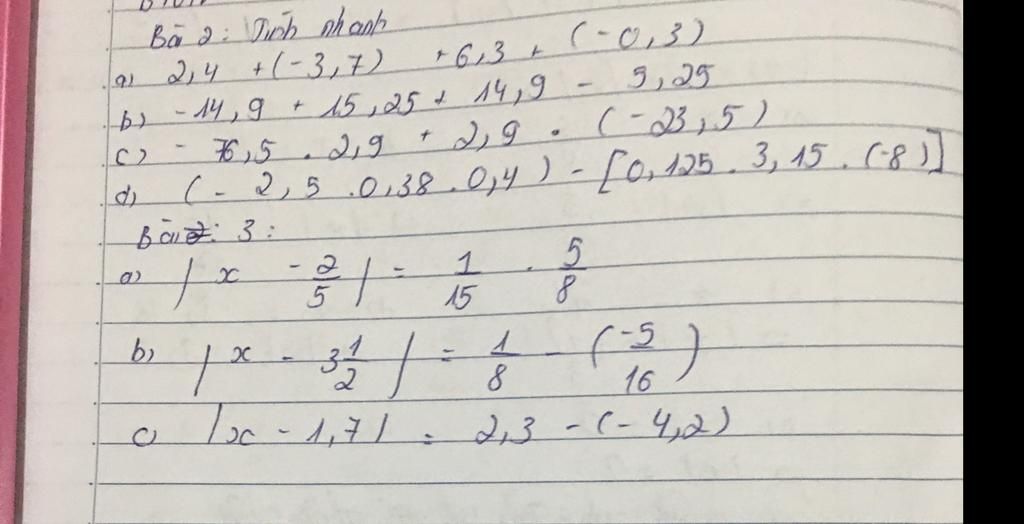 Bài 2: Tính nhanh
a) 2,4 + (-3,7) + 6,3 + (-0,3)
b) -14,9 + 15,25 + 14,9 - 5,25
c) - 76,5 . 2,9 + 2,9 . (-23,5)
d) (- 2,5 . 0,38 . 0,4) - [0,125 . 3,15 . (-8)]
Bài 3:
a) |x - 2/5| = 1/15 . 5/8
b) |x - 3 1/2| = 1/8 - (-5/16)
c) |x - 1,7| = 2,3 - (- 4,2)